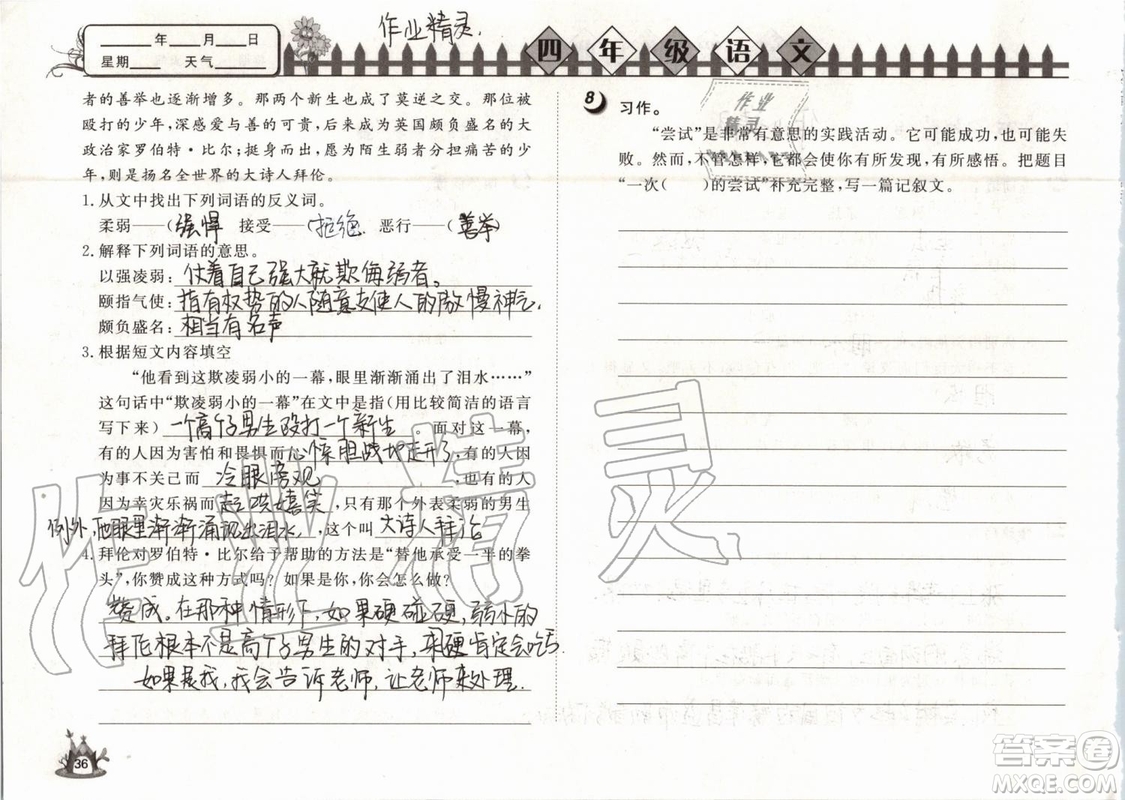 作业精灵.
____年____月____日
星期____ 天气____
四年级语文
者的善举也逐渐增多。那两个新生也成了莫逆之交。那位被
殴打的少年，深感爱与善的可贵，后来成为英国颇负盛名的大
政治家罗伯特·比尔；挺身而出，愿为陌生弱者分担痛苦的少
年，则是扬名全世界的大诗人拜伦。
1. 从文中找出下列词语的反义词。
柔弱——(强悍 接受——(拒绝 恶行——(善举)
2. 解释下列词语的意思。
以强凌弱：仗着自己强大就欺侮弱者。
颐指气使：指有权势的人随意支使人的傲慢神气
颇负盛名：相当有名声
3. 根据短文内容填空
“他看到这欺凌弱小的一幕，眼里渐渐涌出了泪水……”
这句话中“欺凌弱小的一幕”在文中是指(用比较简洁的语言
写下来)一个高个子男生殴打一个新生 面对这一幕，
有的人因为害怕和畏惧而心惊胆战地走开了，有的人因
为事不关己而 冷眼旁观 ，也有的人
因为幸灾乐祸而起哄嬉笑，只有那个外表柔弱的男生
例外，他眼里渐渐涌出泪水，这个叫大诗人拜伦
4. 拜伦对罗伯特·比尔给予帮助的方法是“替他承受一半的拳
头”，你赞成这种方式吗？如果是你，你会怎么做？
赞成。在那种情形下，如果硬碰硬，弱小的
拜伦根本不是高个子男生的对手，来硬肯定会吃亏
如果是我，我会告诉老师，让老师来处理.
36
8 习作。
作业
精灵
“尝试”是非常有意思的实践活动。它可能成功，也可能失
败。然而，不管怎样，它都会使你有所发现，有所感悟。把题目
“一次( )的尝试”补充完整，写一篇记叙文。
作业精灵
答案圈
MXQE.COM